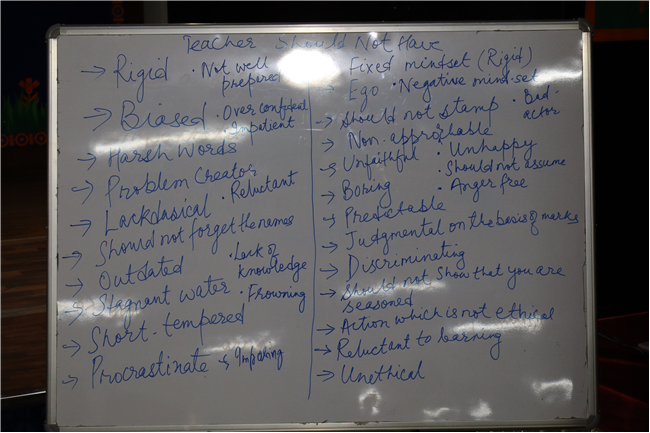 Teacher Should Not Have
→ Rigid · Not well prepared
→ Biased · Over confident · Impatient
→ Harsh Words
→ Problem Creator
→ Lackdasical · Reluctant
→ Should not forget the names
→ Outdated · Lack of knowledge
→ Stagnant water · Frowning
→ Short-tempered
→ Procrastinate
Fixed mindset (Rigid)
→ Ego · Negative mind-set
→ Should not stamp · Bad-actor
→ Non-approchable
→ Unfaithful · Unhappy
→ Boring · Should not assume
· Anger free
→ Predictable
→ Judgmental on the basis of marks
→ Discriminating
→ Should not show that you are seasoned
→ Action which is not ethical
→ Reluctant to learning
→ Unethical